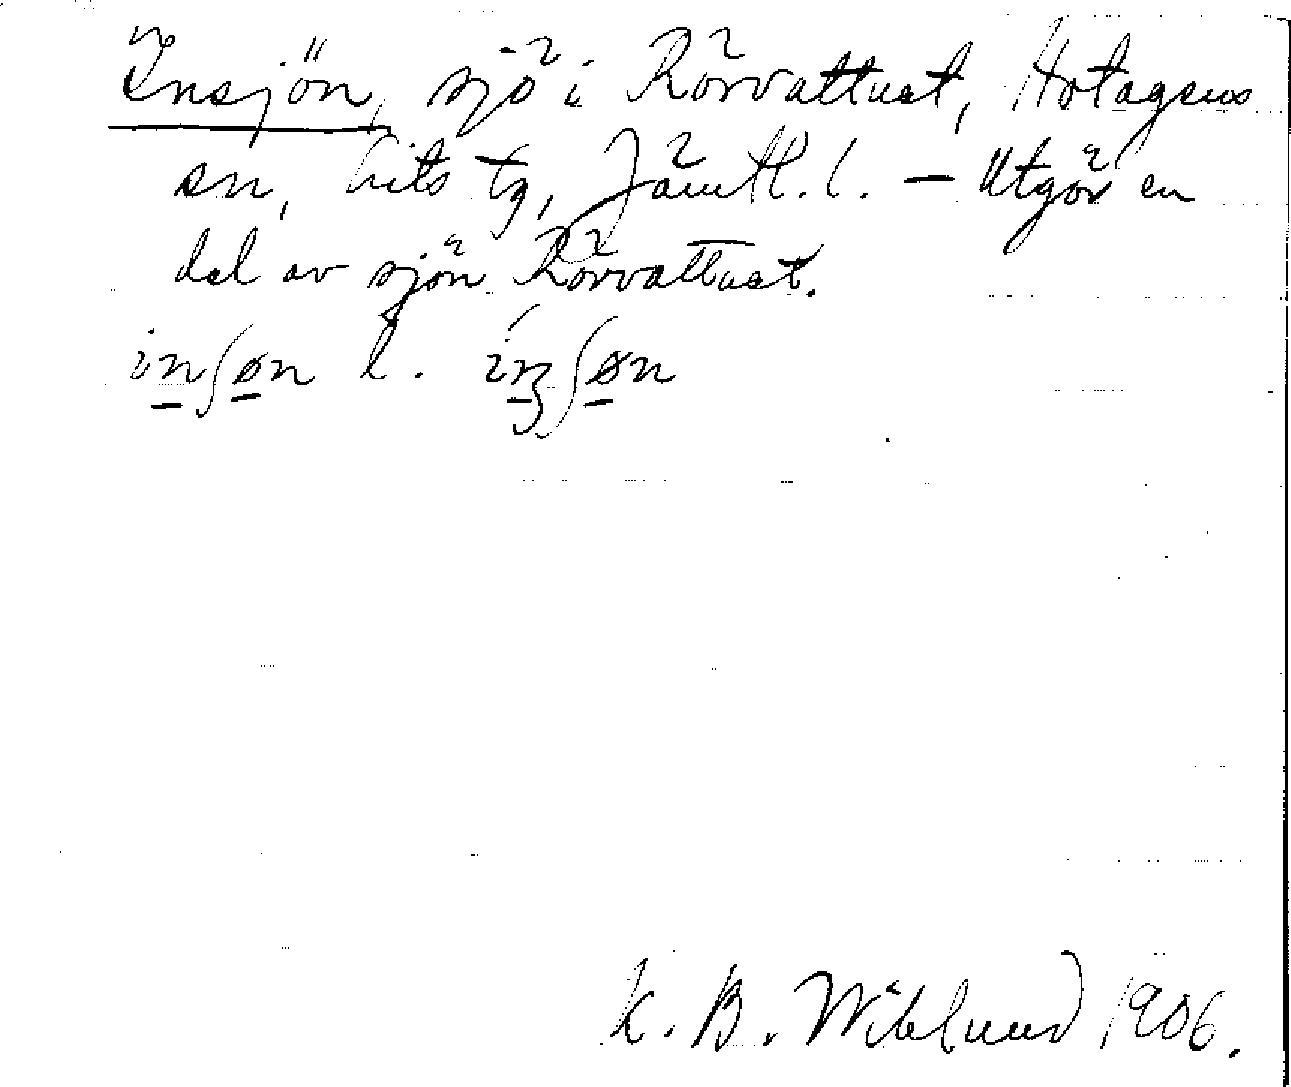 Insjön, sjö i Rörvattnet, Hotagens
sn, Lits tg, Jämtl. l. – Utgör en
del av sjön Rörvattnet.
inʃøn l. ínʒʃøn
K. B. Wiklund 1906.